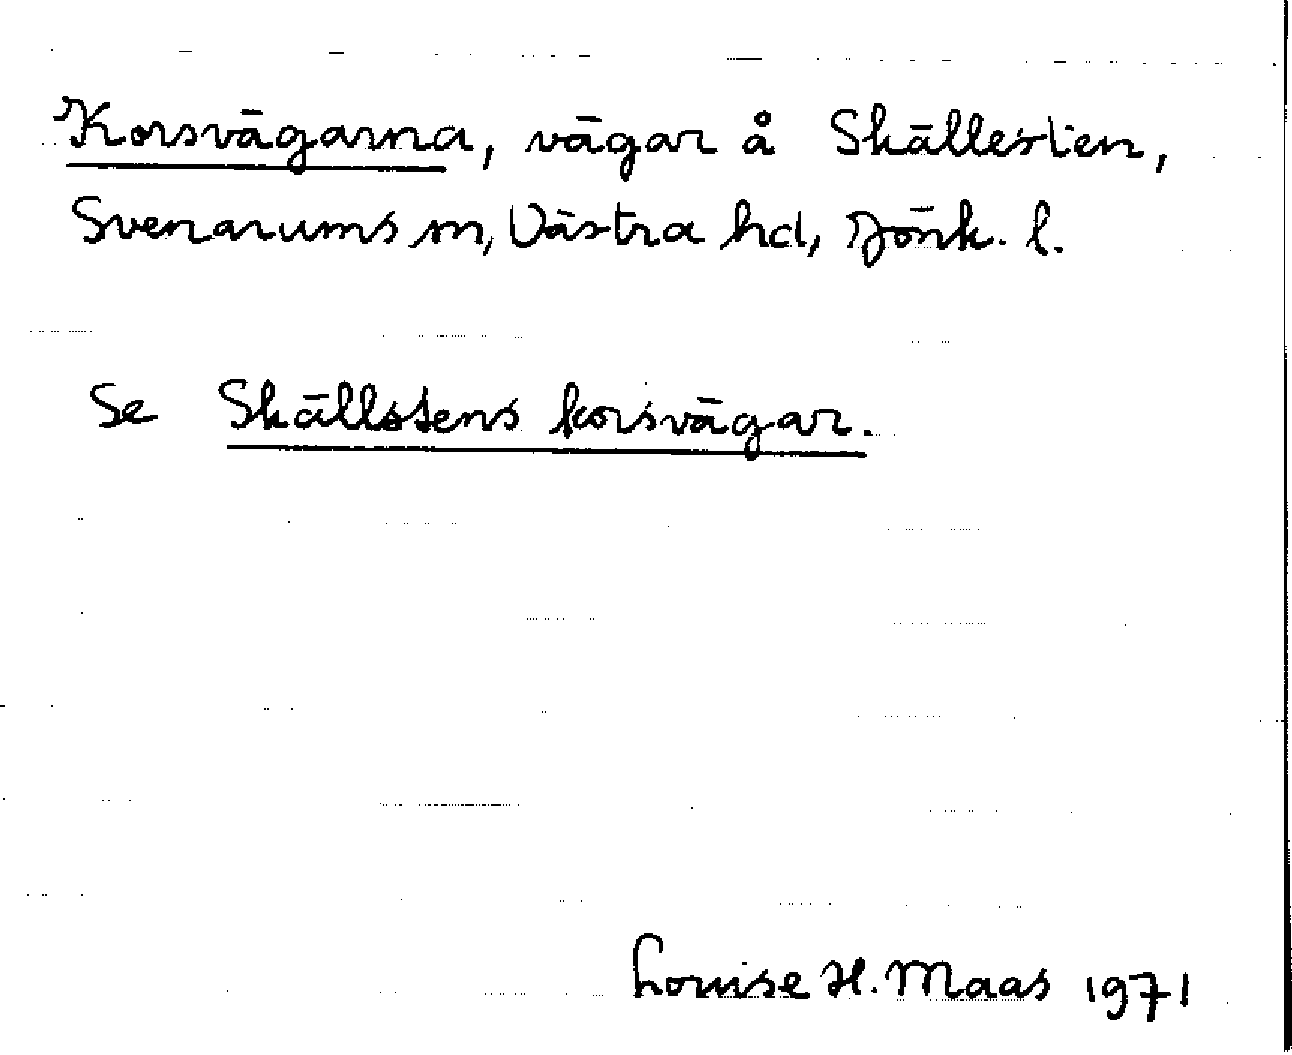 Korsvägarna, vägar å Skällesten,
Svenarums sn, Västra hd, Jönk. l.
Se Skällstens korsvägar.
Louise H. Maas 1971